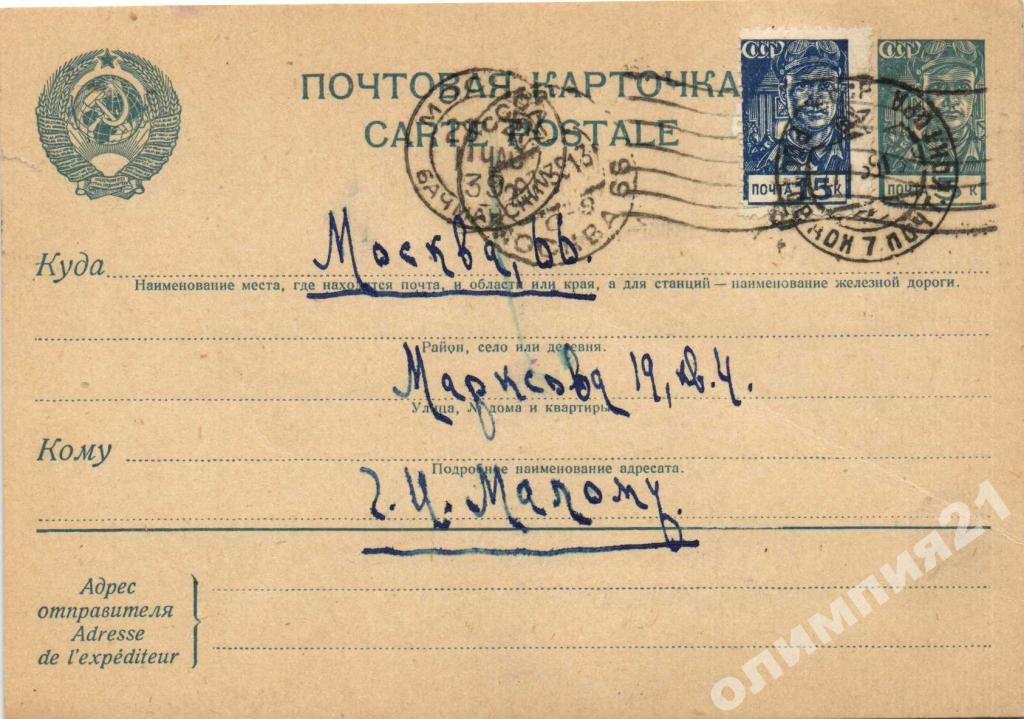 ПОЧТОВАЯ КАРТОЧКА
CARTE POSTALE
СССР
СССР
ПОЧТА 15 К
К
МОСКВА 66
Куда Москва, 66.
Наименование места, где находится почта, и области или края, а для станций — наименование железной дороги.
Район, село или деревня.
Марксова 19, кв. 4.
Улица, № дома и квартиры
Кому
Подробное наименование адресата.
г. Ц. Малому.
Адрес
отправителя
Adresse
de l'expéditeur
олимпия21